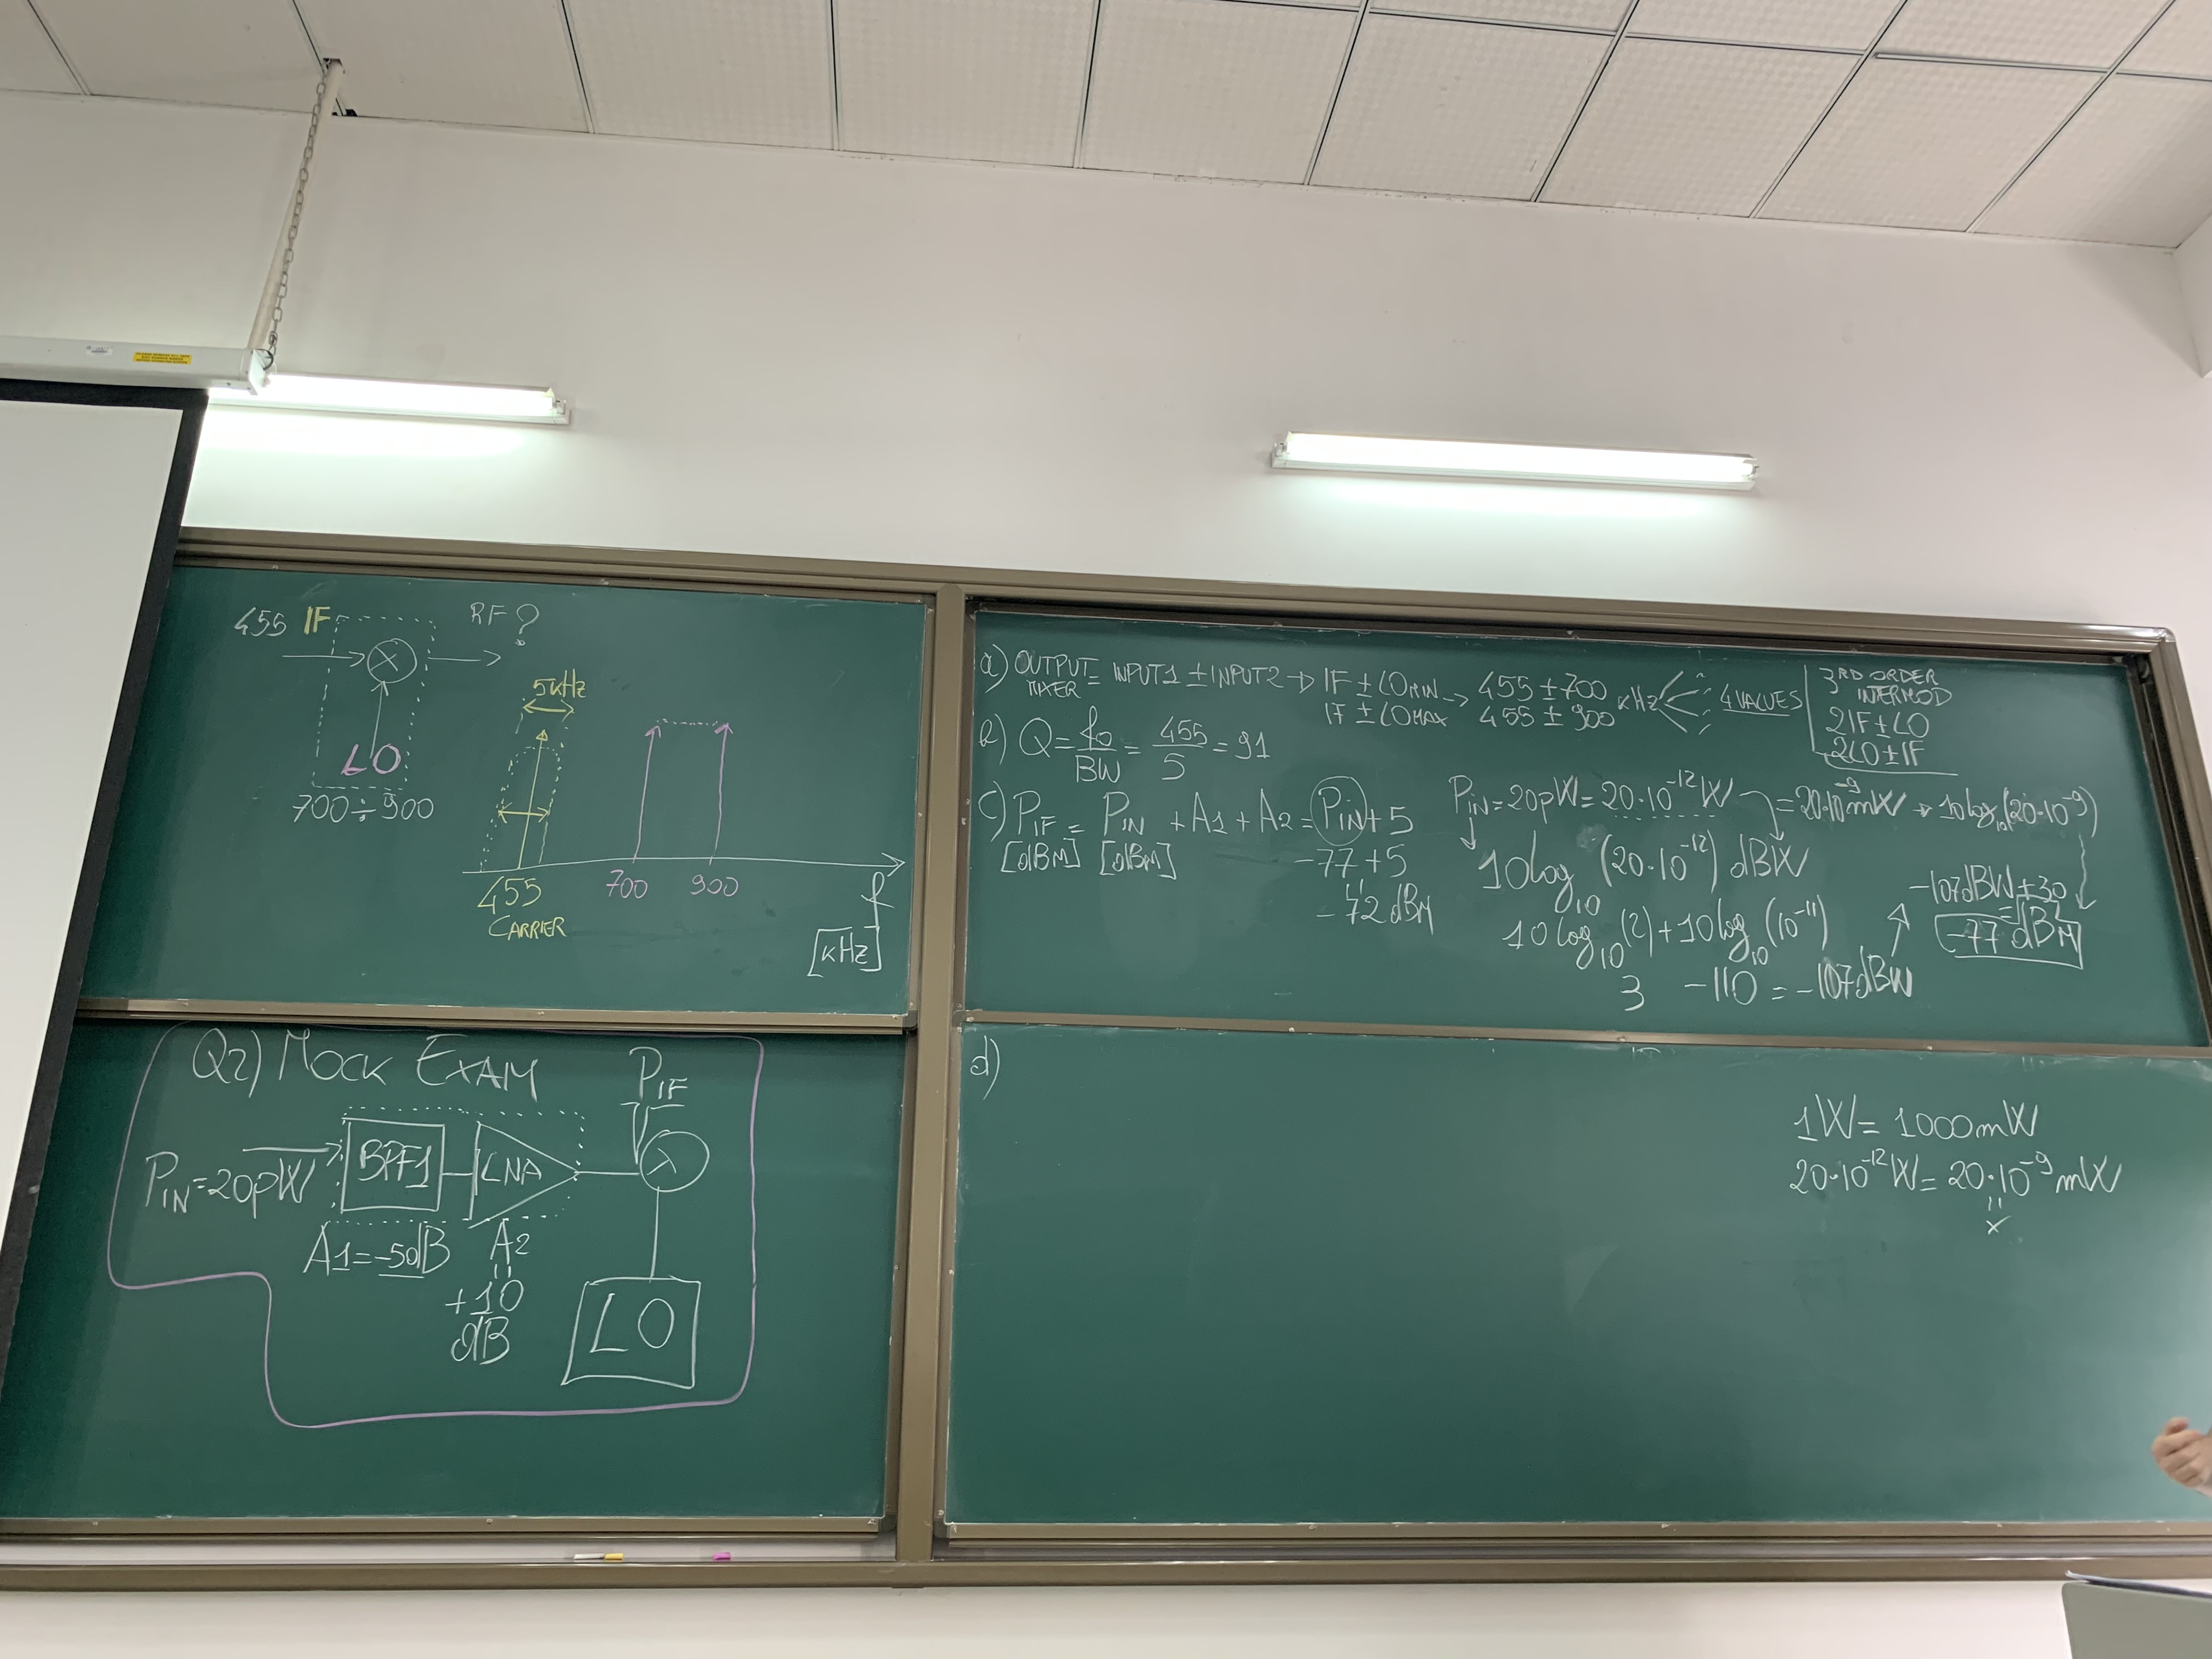 455 IF
RF ?
LO
700÷900
5kHz
455
CARRIER
700
900
f
[kHz]
Q2) MOCK EXAM
PIF
PIN=20pW
BPF1
LNA
A1=-5dB
A2
=
+10
dB
LO
a) OUTPUT MIXER = INPUT1 ± INPUT2 → IF ± LO MIN → 455 ± 700
IF ± LO MAX 455 ± 900 kHz
4 VALUES
3RD ORDER
INTERMOD
2IF ± LO
2LO ± IF
b) Q = fo/BW = 455/5 = 91
c) PIF = PIN + A1 + A2 = PIN + 5
[dBM] [dBM]
-77+5
=
-72 dBM
PIN = 20pW = 20·10^-12 W = 20·10^-9 mW → 10log10(20·10^-9)
10log10 (20·10^-12) dBW
10log10(2)+10log10(10^-11)
3 -110 = -107dBW
-107dBW+30
=
-77 dBM
d)
1W = 1000mW
20·10^-12 W = 20·10^-9 mW
=
x